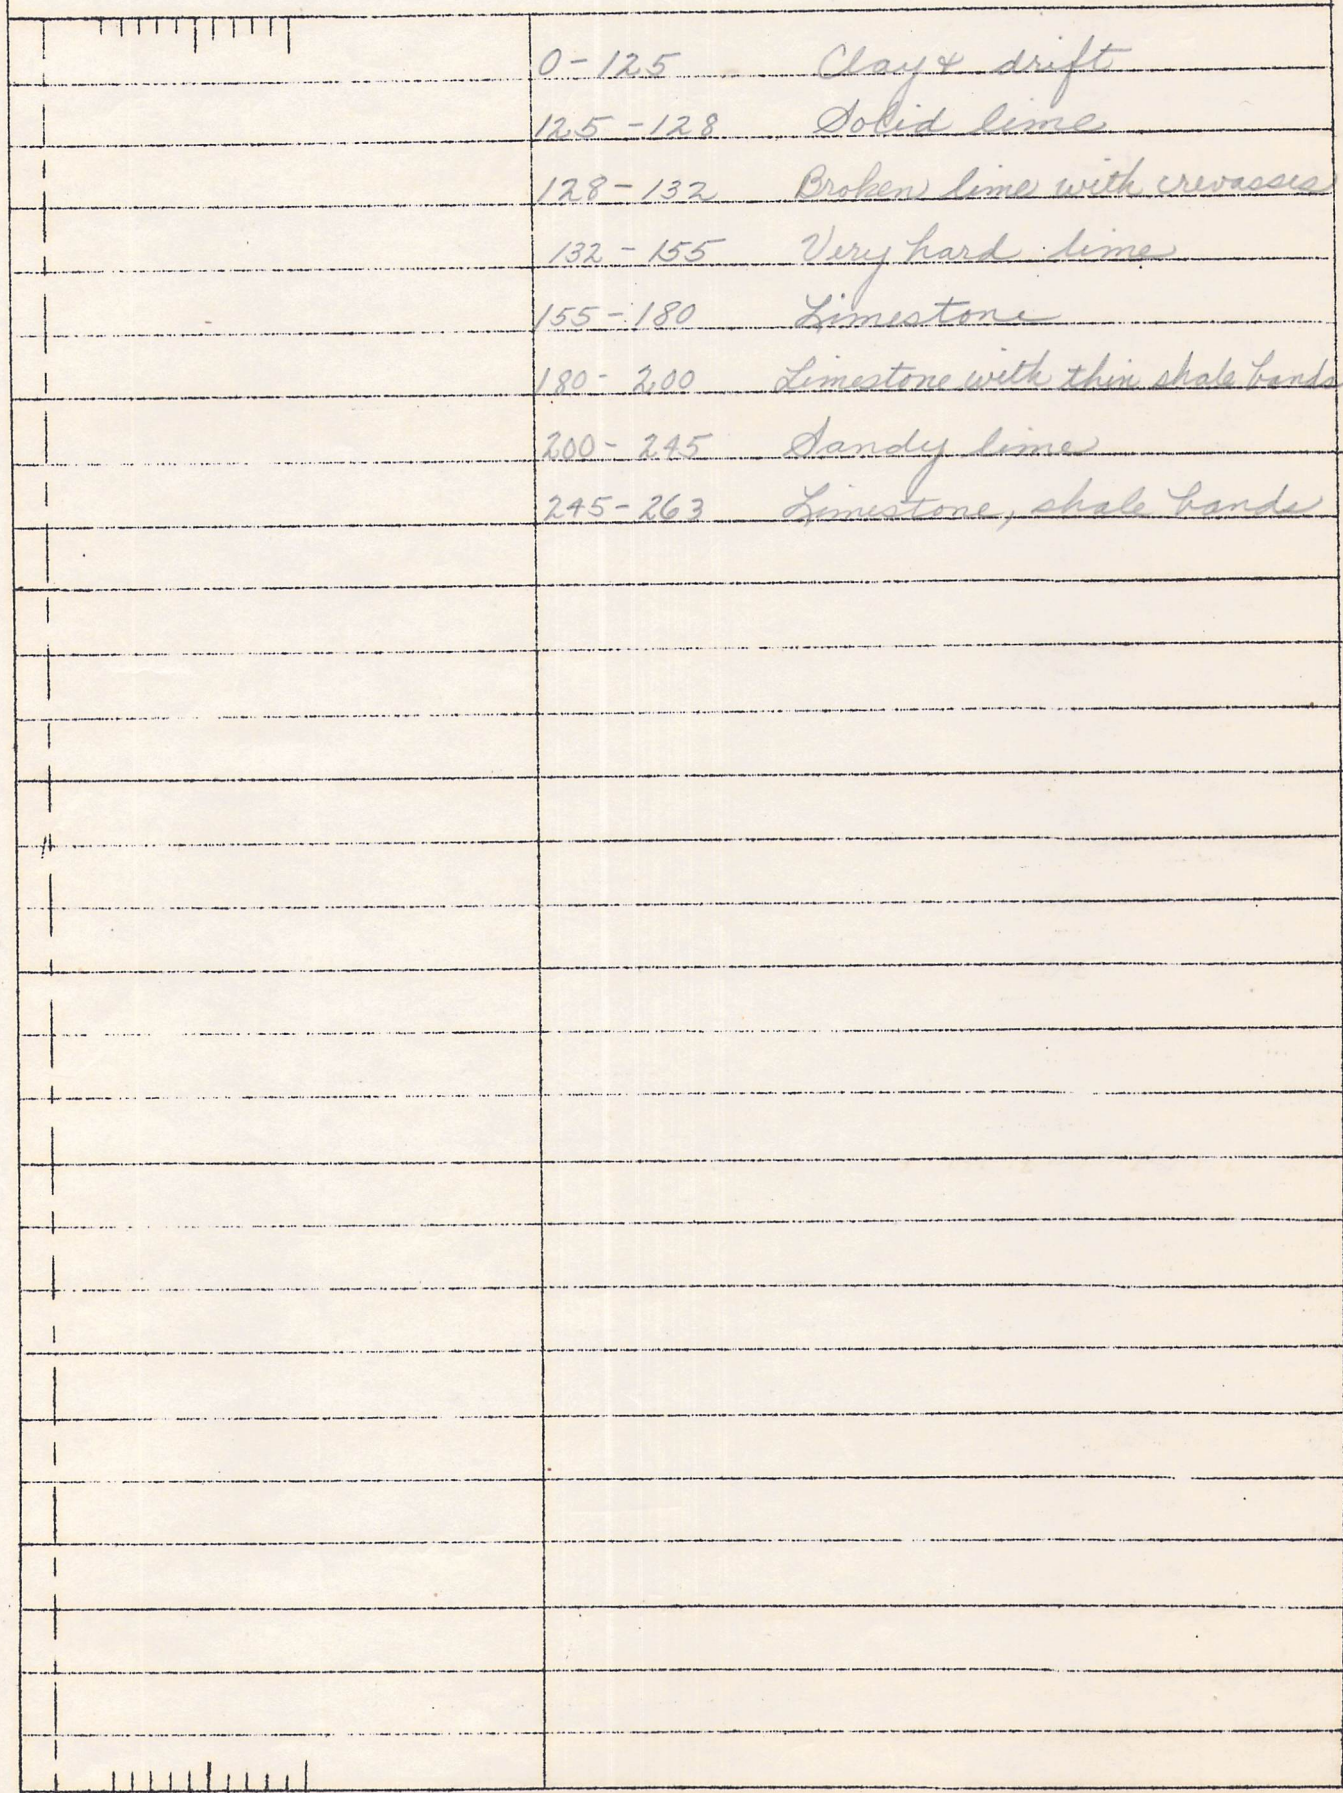 0-125 Clay & drift
125-128 Solid lime
128-132 Broken lime with crevasses
132-155 Very hard lime
155-180 Limestone
180-200 Limestone with thin shale bands
200-245 Sandy lime
245-263 Limestone, shale bands